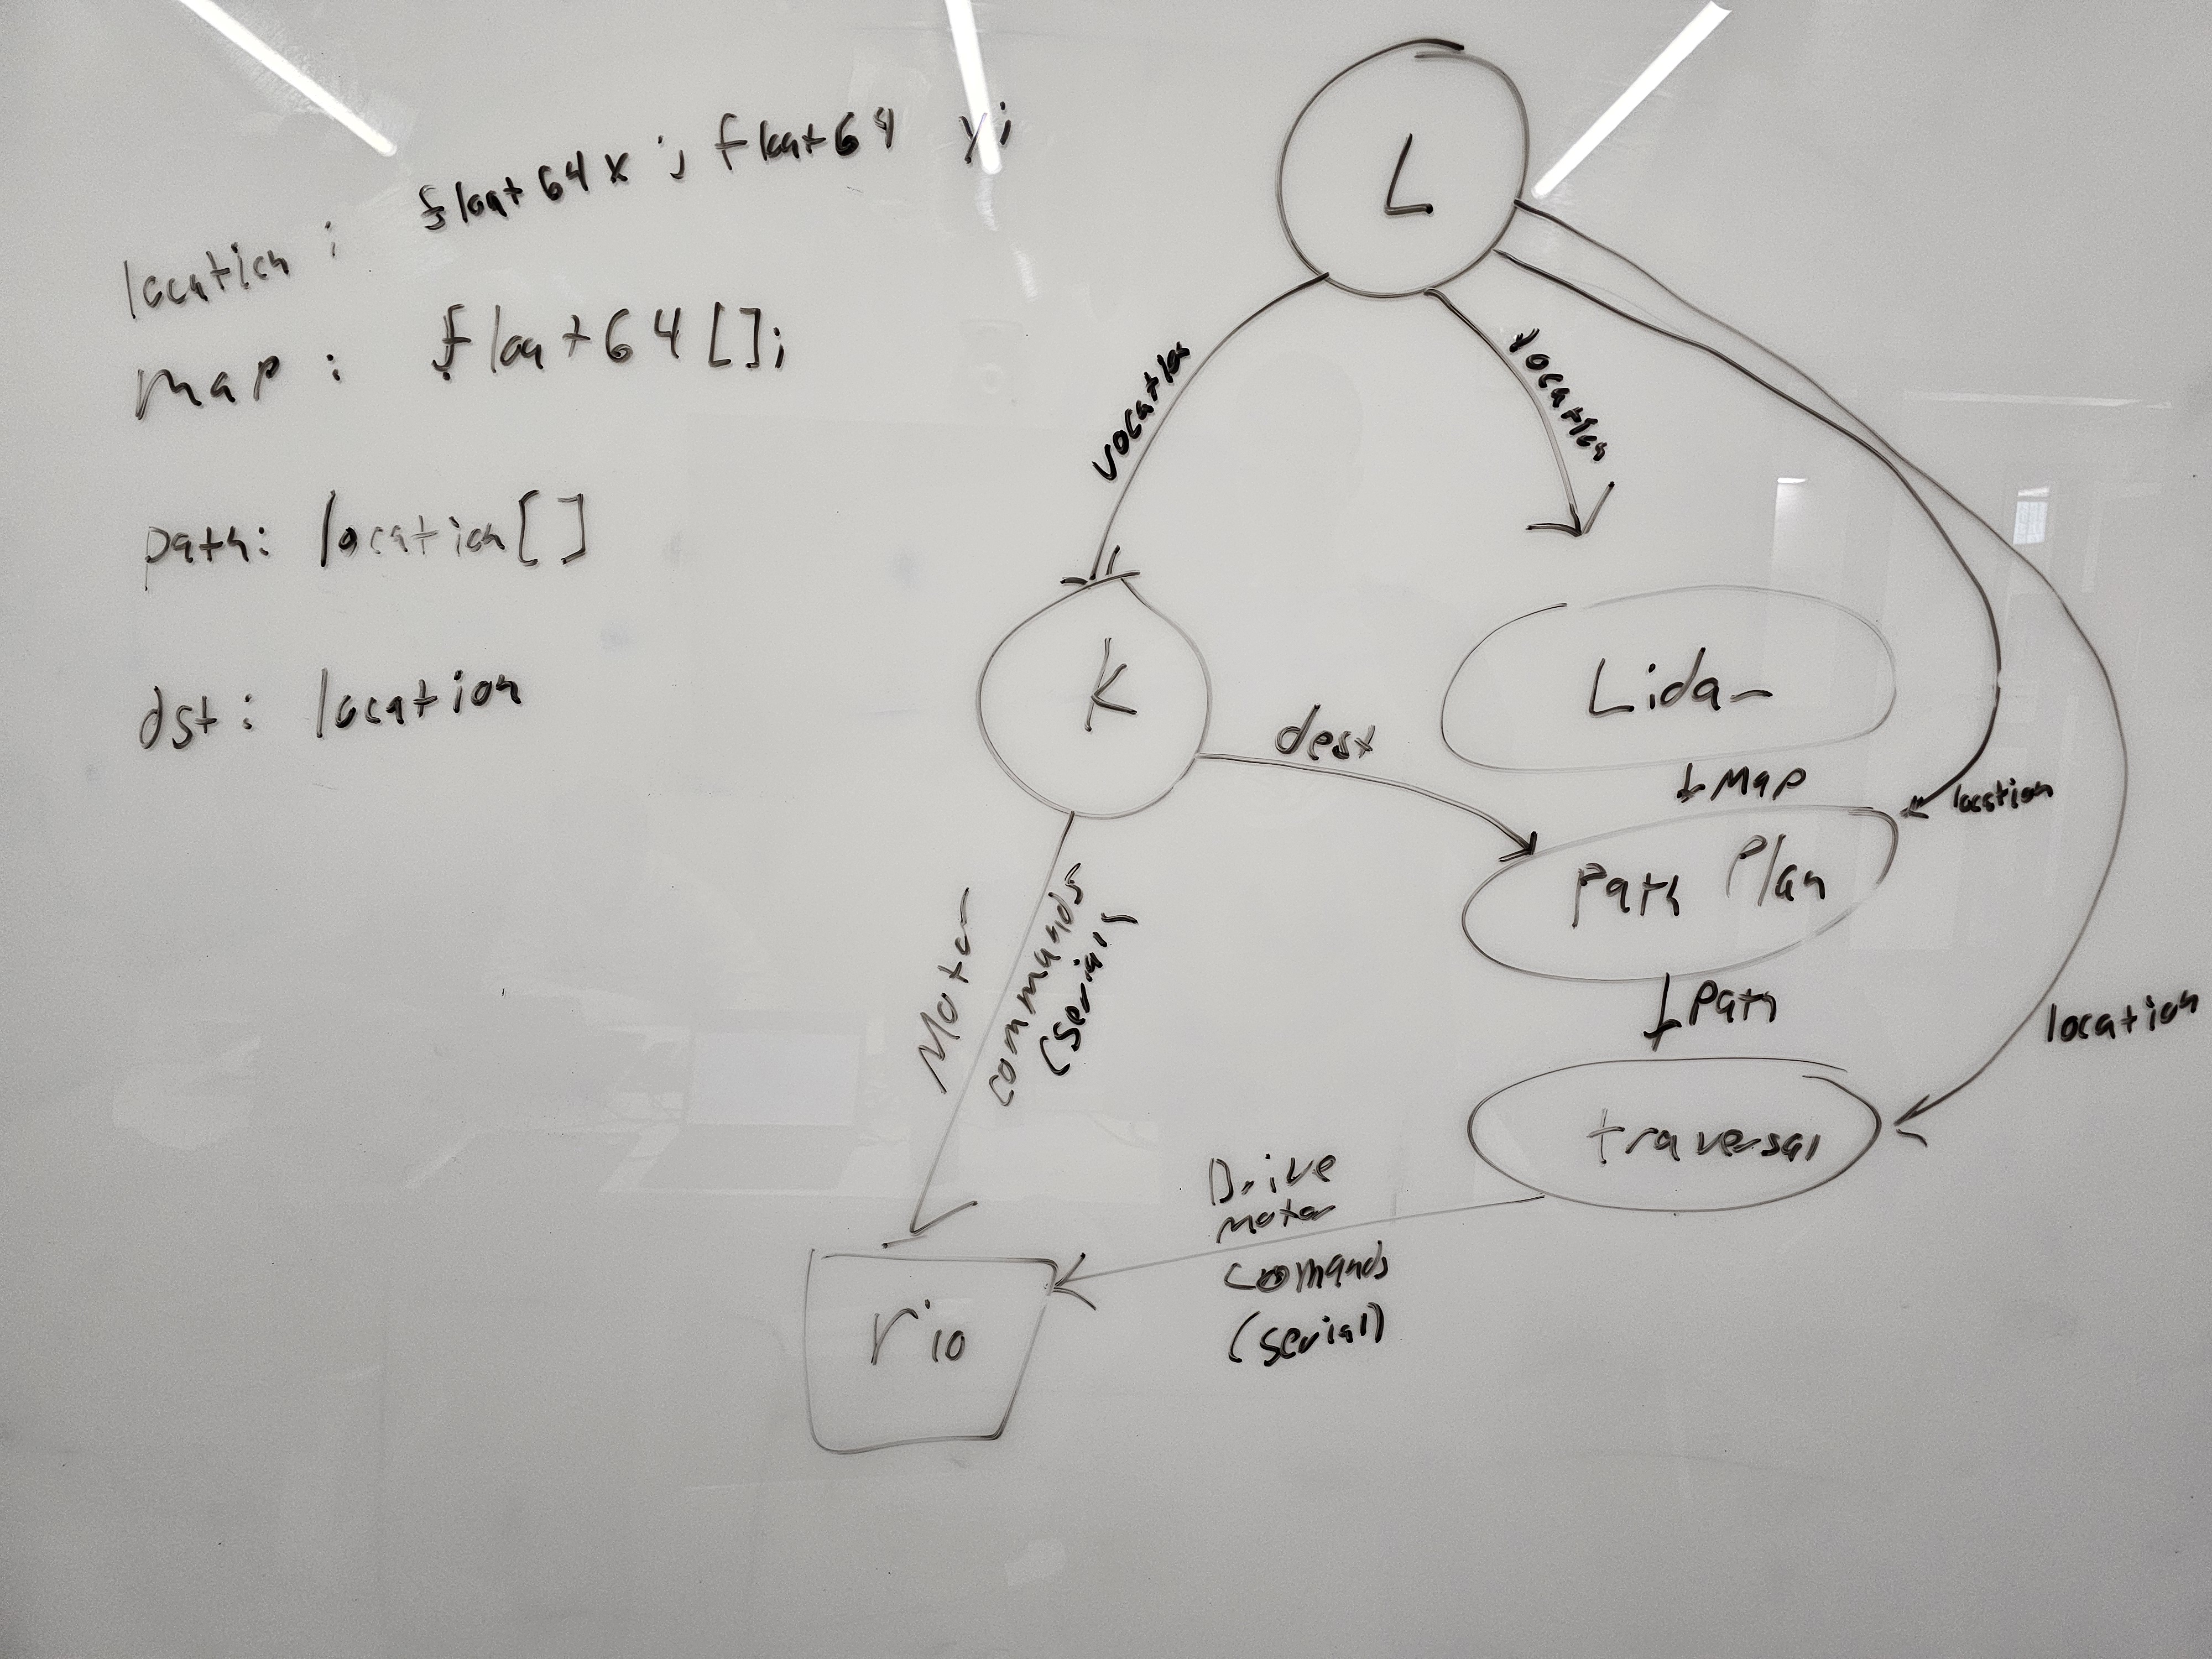 location : float64 x ; float64 y;
map : float64[];
path: location[]
dst: location
L
location
location
K
Lidar
dest
↓ Map
location
Path Plan
↓ Path
location
Motor
commands
(serial)
traversal
Drive
motor
comands
(serial)
rio